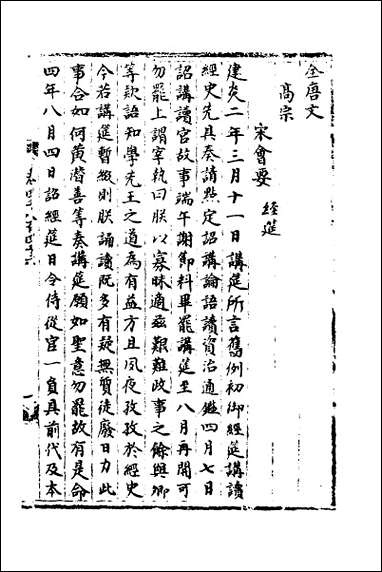 全唐文
高宗
宋會要 經筵
建炎二年三月十一日講筵所言舊例初御經筵講讀
經史先具奏請點定詔講論語讀資治通鑑四月七日
詔講讀官故事端午謝節料畢罷講筵至八月再開可
勿罷上謂宰執曰朕以寡昧適茲艱難政事之餘與卿
等款語知學先王之道為有益方且夙夜孜孜於經史
今若講筵暫輟則朕誦讀既多有疑無質徒廢日力此
事合如何黄潛善等奏講筵願如聖意勿罷故有是命
四年八月四日詔經筵日令侍從官一負具前代及本